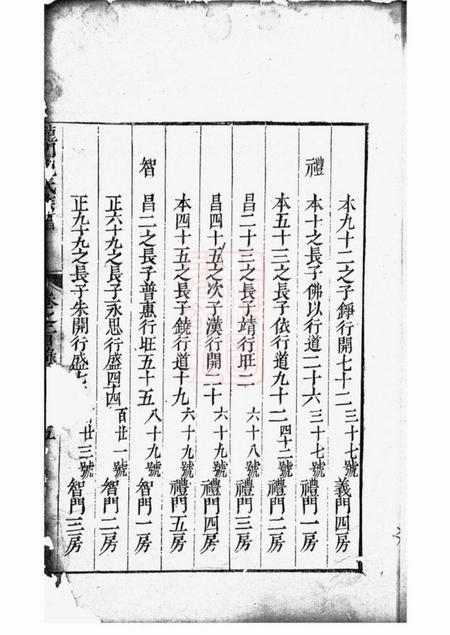 本九十二之子錚行開七十二 三十七號 義門四房
禮 本十之長子佛以行道二十六 三十七號 禮門一房
本五十三之長子依行道九十二 四十二號 禮門二房
昌二十三之長子靖行旺二 六十八號 禮門三房
昌四十五之次子漢行開二十 六十九號 禮門四房
本四十五之長子鐃行道十九 六十九號 禮門五房
智 昌二之長子普惠行旺五十五 八十九號 智門一房
正六十九之長子永思行盛四十四 百廿一號 智門二房
正九十九之長子朱開行盛 廿三號 智門三房
氏 卷 五